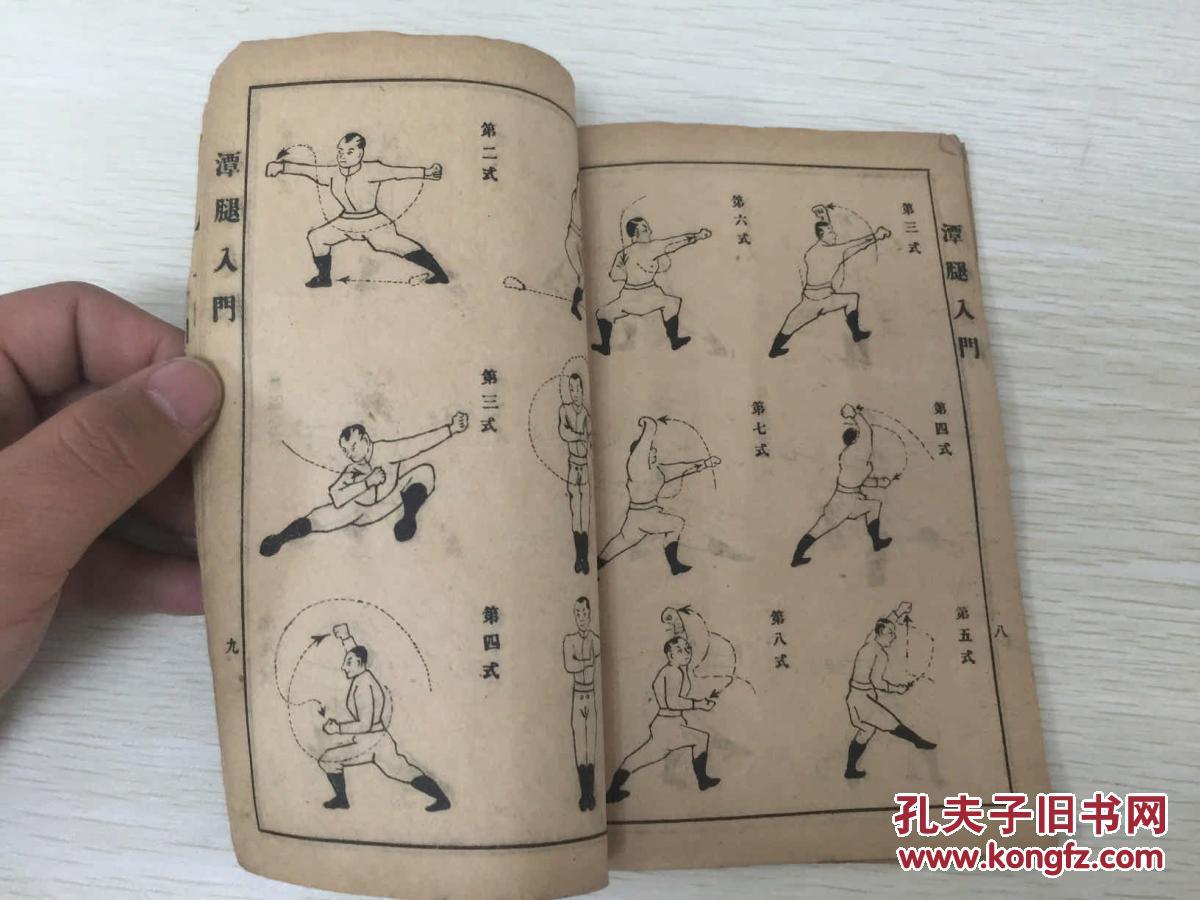 潭腿入門
第三式
第四式
第五式
八
第六式
第七式
第八式
第二式
第三式
第四式
潭腿入門
九
孔夫子旧书网
www.kongfz.com